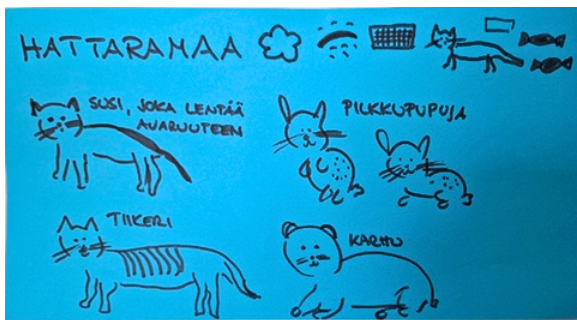 HATTARAMAA
SUSI, JOKA LENTÄÄ
AVARUUTEEN
PILKKUPUPUJA
TIIKERI
KARHU